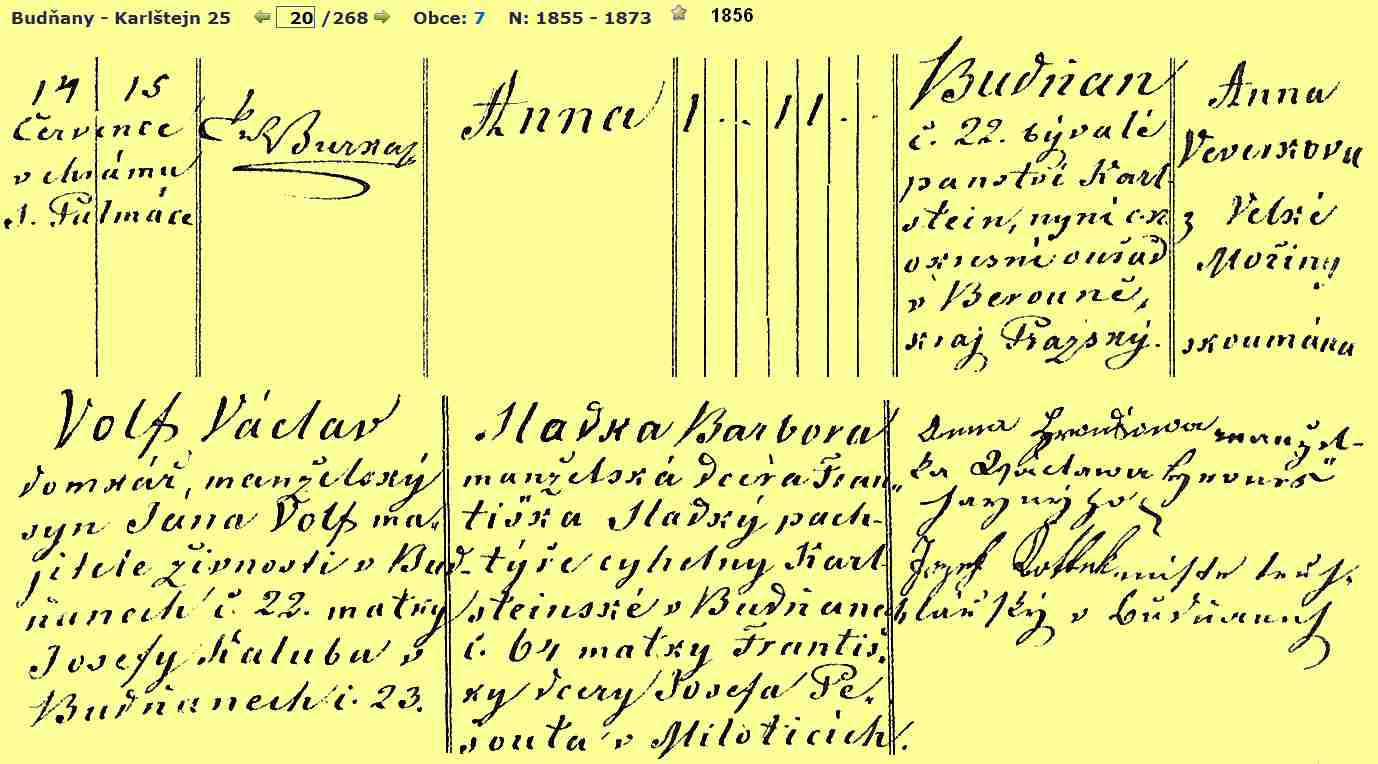 Budňany - Karlštejn 25 20 /268 Obce: 7 N: 1855 - 1873 1856
14 15
Července
v chrámu
S. Palmáce
Burka
Anna
1 . . 1 1 . .
Budňan
č. 22. bývalé
panství Karl-
stein, nyní c. k.
okresní ouřad
v Berouně,
kraj Pražský.
Anna
Veverkova
z Velké
Mořiny
skoumána
Volf Václav
domkář, manželský
syn Jana Volf ma-
jitele živnosti v Bud-
ňanech č. 22. matky
Josefy Kaluba v
Budňanech č. 23.
Sladka Barbora
manželská dcera Fran-
tiška Sladký pach-
týře cyhelny Karl-
steinské v Budňanech
č. 64 matky Františ-
ky dcery Josefa Pe-
šouta v Miloticích.
Anna manžel-
ka Wáclawa
Jozef mistr truh-
lářský v Budňanech